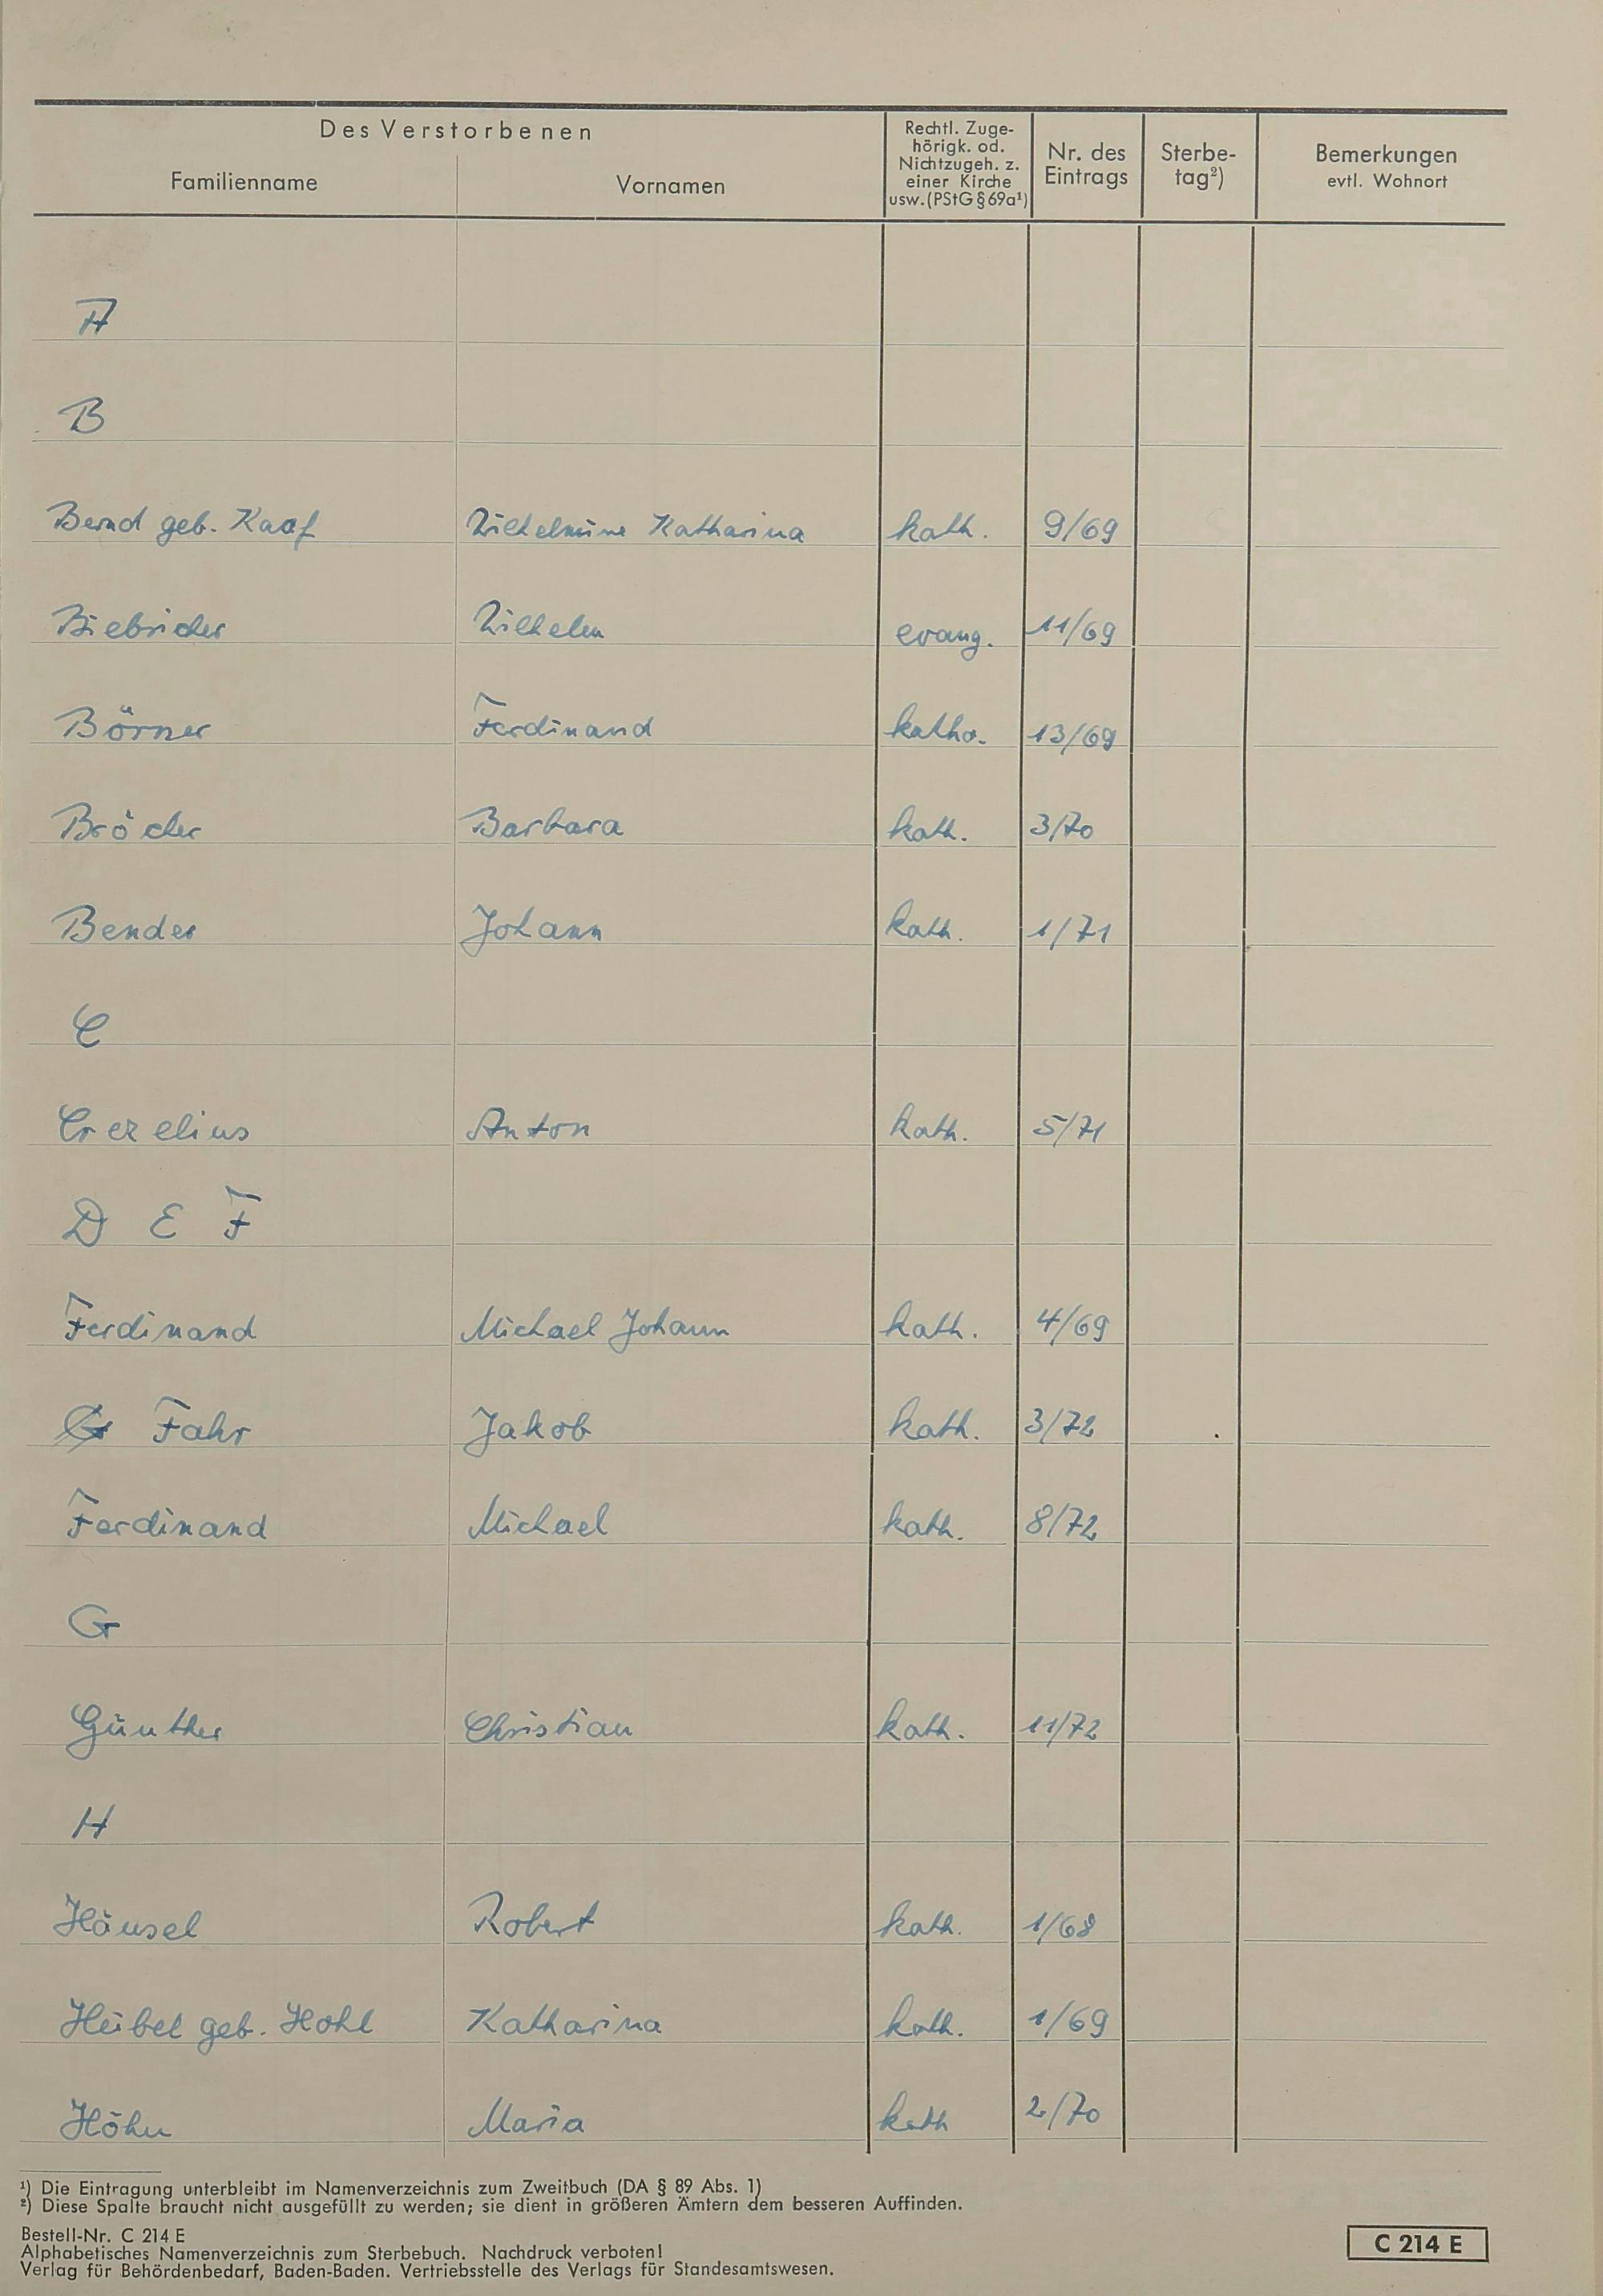 Des Verstorbenen
Familienname
Vornamen
Rechtl. Zuge-
hörigk. od.
Nichtzugeh. z.
einer Kirche
usw. (PStG § 69a¹)
Nr. des
Eintrags
Sterbe-
tag²)
Bemerkungen
evtl. Wohnort
A
B
Bernd geb. Kaaf Wilhelmine Katharina kath. 9/69
Biebricher Wilhelm evang. 11/69
Börner Ferdinand katho. 13/69
Bröder Barbara kath. 3/70
Bender Johann kath. 1/71
C
Crezelius Anton kath. 5/71
D E F
Ferdinand Michael Johann kath. 4/69
G Fahr Jakob kath. 3/72
Ferdinand Michael kath. 8/72
G
Günther Christian kath. 11/72
H
Häusel Robert kath. 1/68
Heibel geb. Hohl Katharina kath. 1/69
Höhn Maria kath 2/70
¹) Die Eintragung unterbleibt im Namenverzeichnis zum Zweitbuch (DA § 89 Abs. 1)
²) Diese Spalte braucht nicht ausgefüllt zu werden; sie dient in größeren Ämtern dem besseren Auffinden.
Bestell-Nr. C 214 E
Alphabetisches Namenverzeichnis zum Sterbebuch. Nachdruck verboten!
Verlag für Behördenbedarf, Baden-Baden. Vertriebsstelle des Verlags für Standesamtswesen.
C 214 E